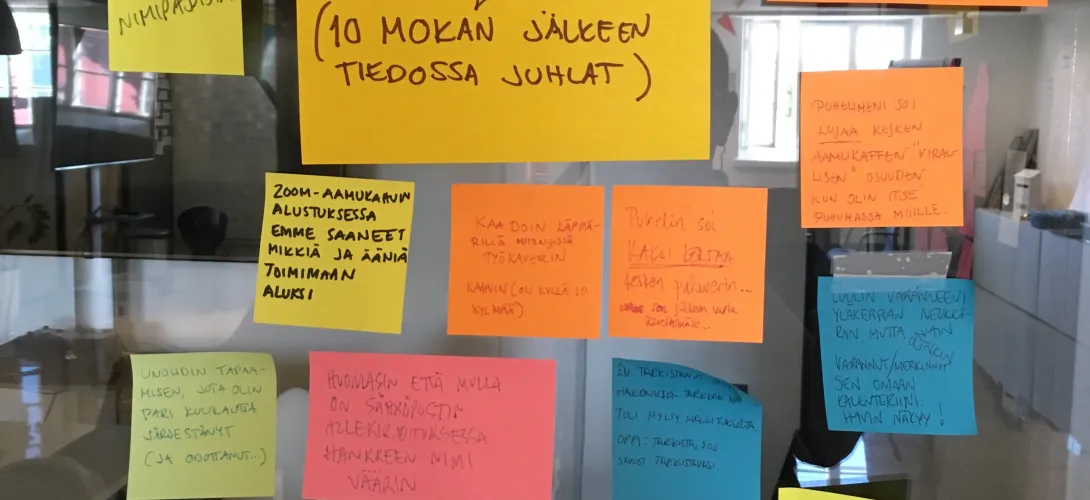 NIMIPÄIVIÄ
(10 MOKAN JÄLKEEN
TIEDOSSA JUHLAT)
PUHELIMENI SOI
LUJAA KESKEN
AAMUKAFFEN "VIRAL-
LISEN" OSUUDEN
KUN OLIN ITSE
PUHUMASSA MUILLE.
ZOOM-AAMUKAHVIN
ALUSTUKSESSA
EMME SAANEET
MIKKIÄ JA ÄÄNIÄ
TOIMIMAAN
ALUKSI
KAADOIN LÄPPÄ-
RILLÄ
TYÖKAVERIN
KAHVIN (OLI KYLLÄ JO
KYLMÄÄ)
Puhelin soi
KAKSI KERTAA
kesken palaverin...
sen jälkeen
LUULIN VARANNEENI
YLÄKERRAN NEUKKA-
RAN, MUTTA VAIN
VARANNUT/MERKINNYT
SEN OMAAN
KALENTERIINI.
HYVIN NÄKYY!
UNOHDIN TAPAA-
MISEN, JOTA OLIN
PARI KUUKAUTTA
JÄRJESTÄNYT
(JA ODOTTANUT...)
HUOMASIN ETTÄ MULLA
ON SÄHKÖPOSTIN
ALLEKIRJOITUKSESSA
HANKKEEN NIMI
VÄÄRIN
EN TARKISTANUT
HAKEMUKSEN
TULI HYLSY
OPPI: TARKISTA, JOS
SANOT TARKISTAVASI.